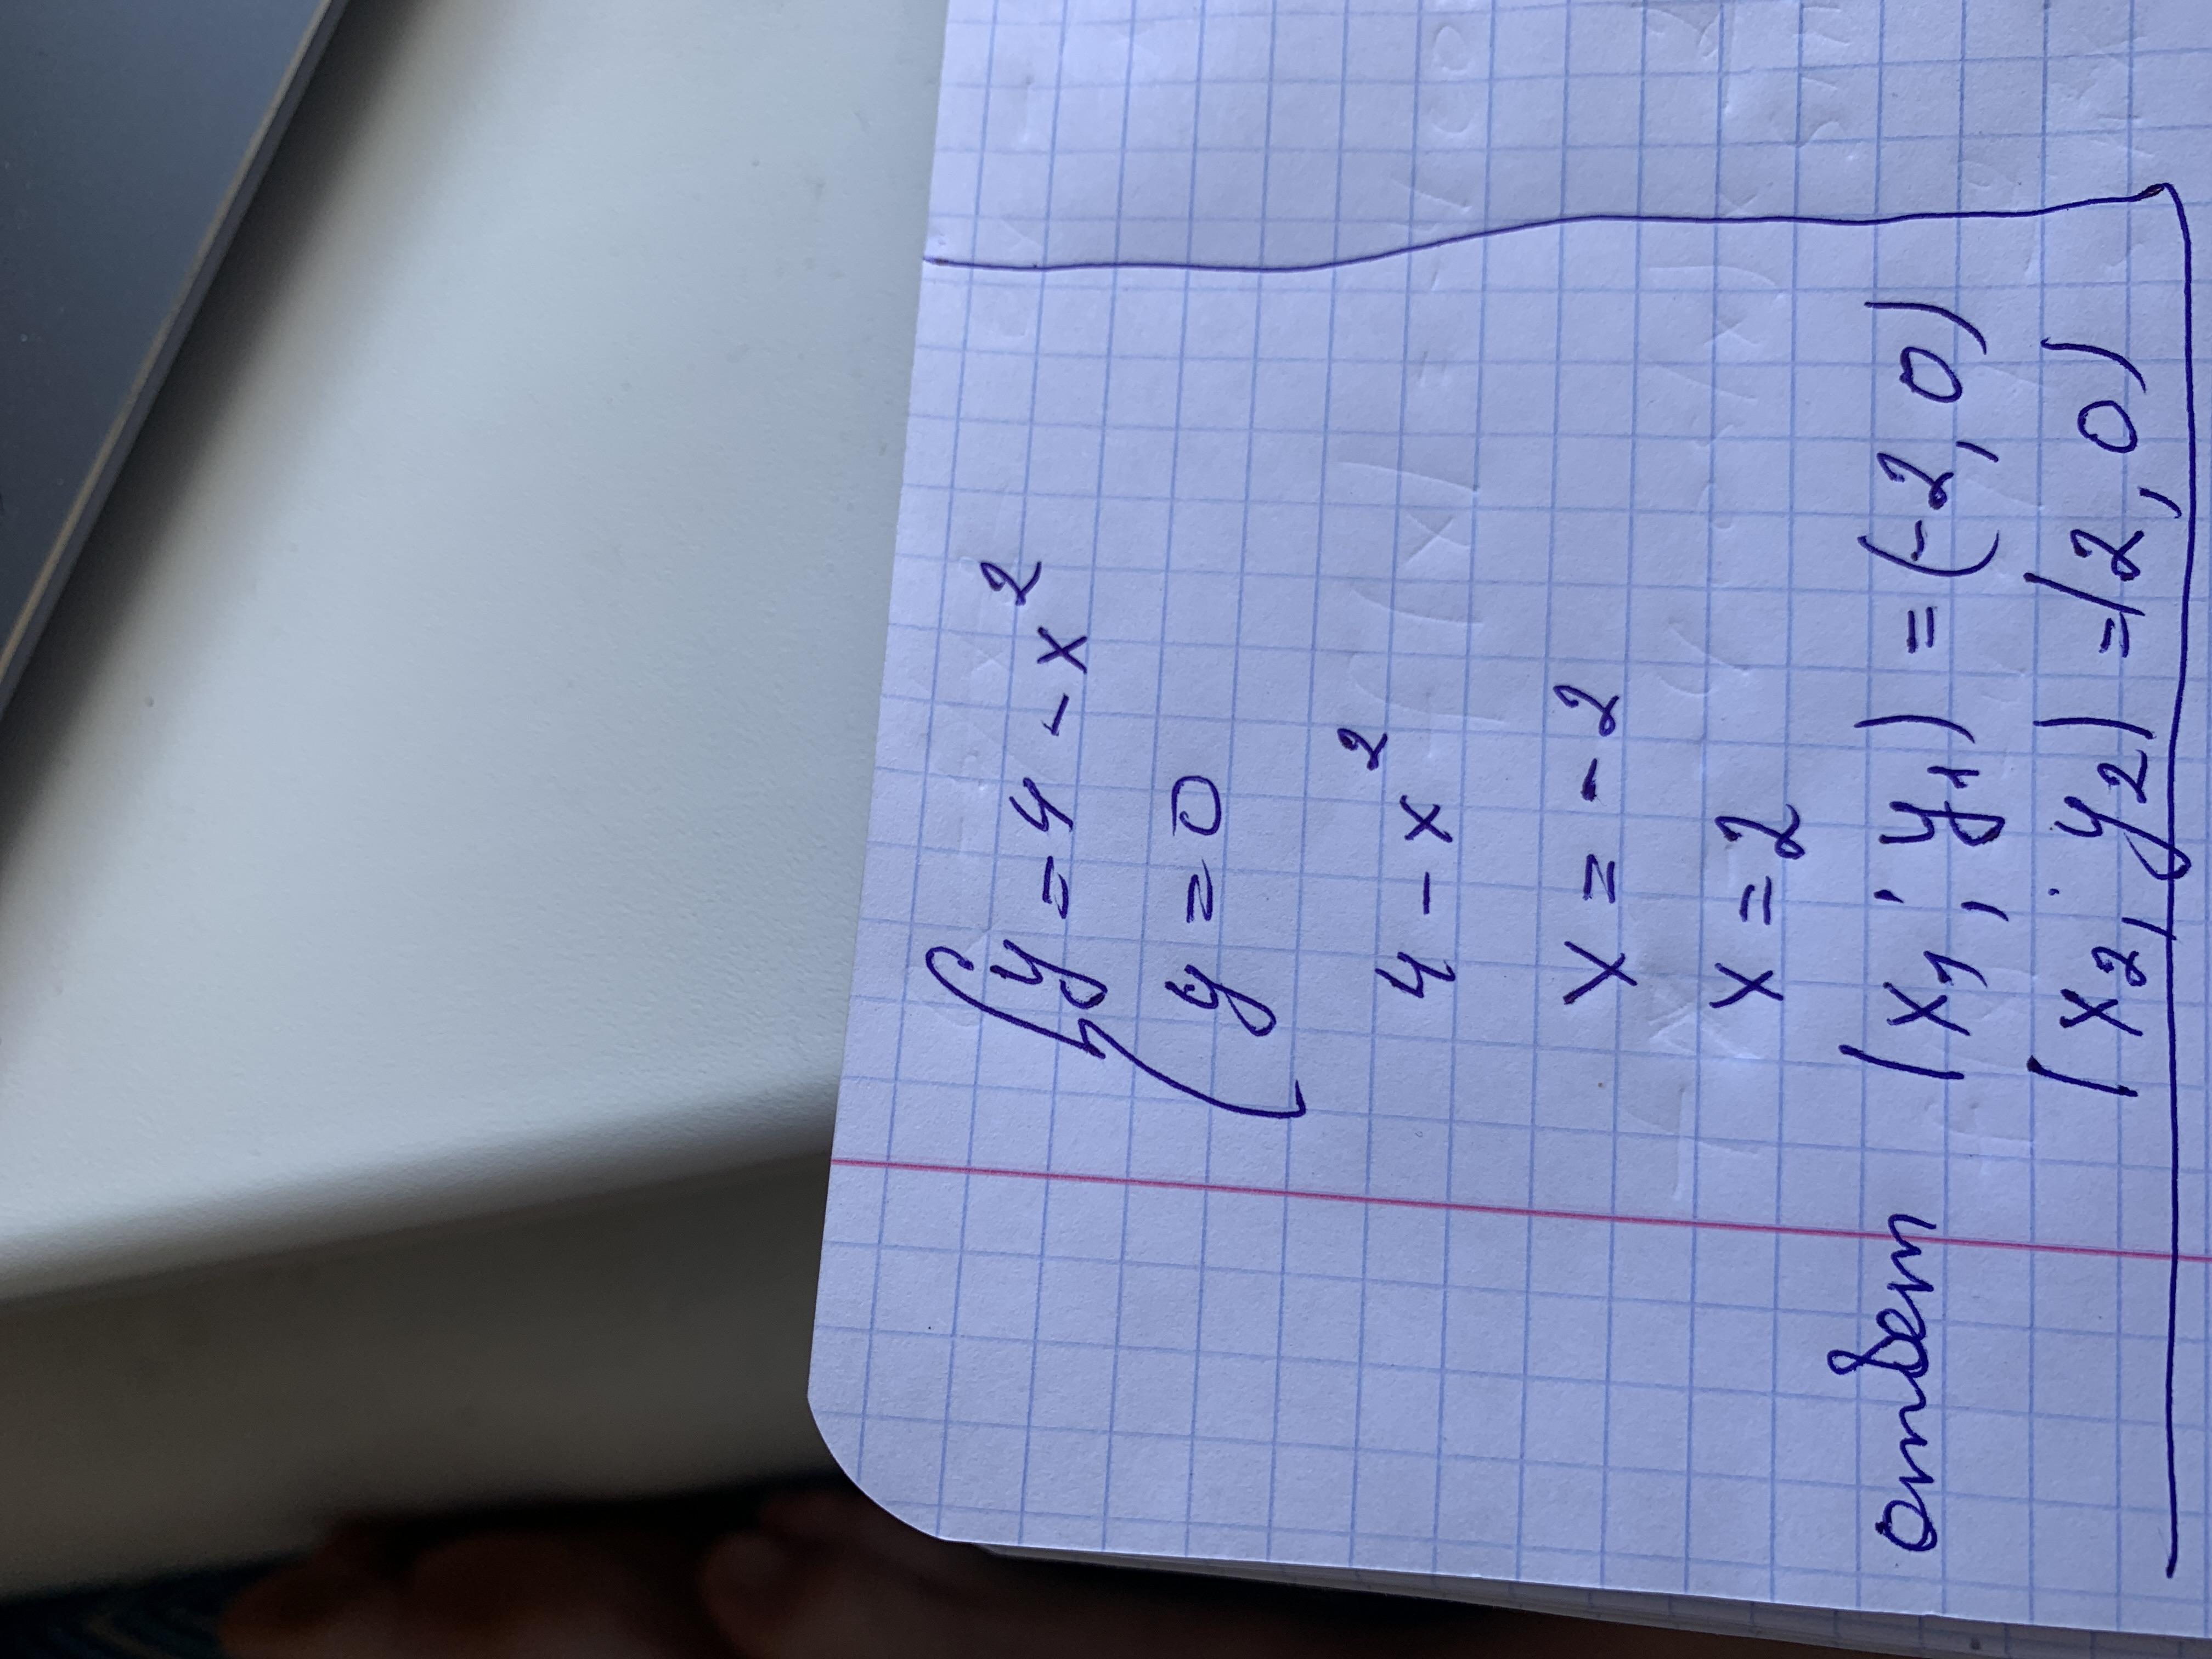 {y = 4 - x²
y = 0
4 - x²
x = -2
x = 2
ответ (x₁; y₁) = (-2, 0)
(x₂; y₂) = (2, 0)